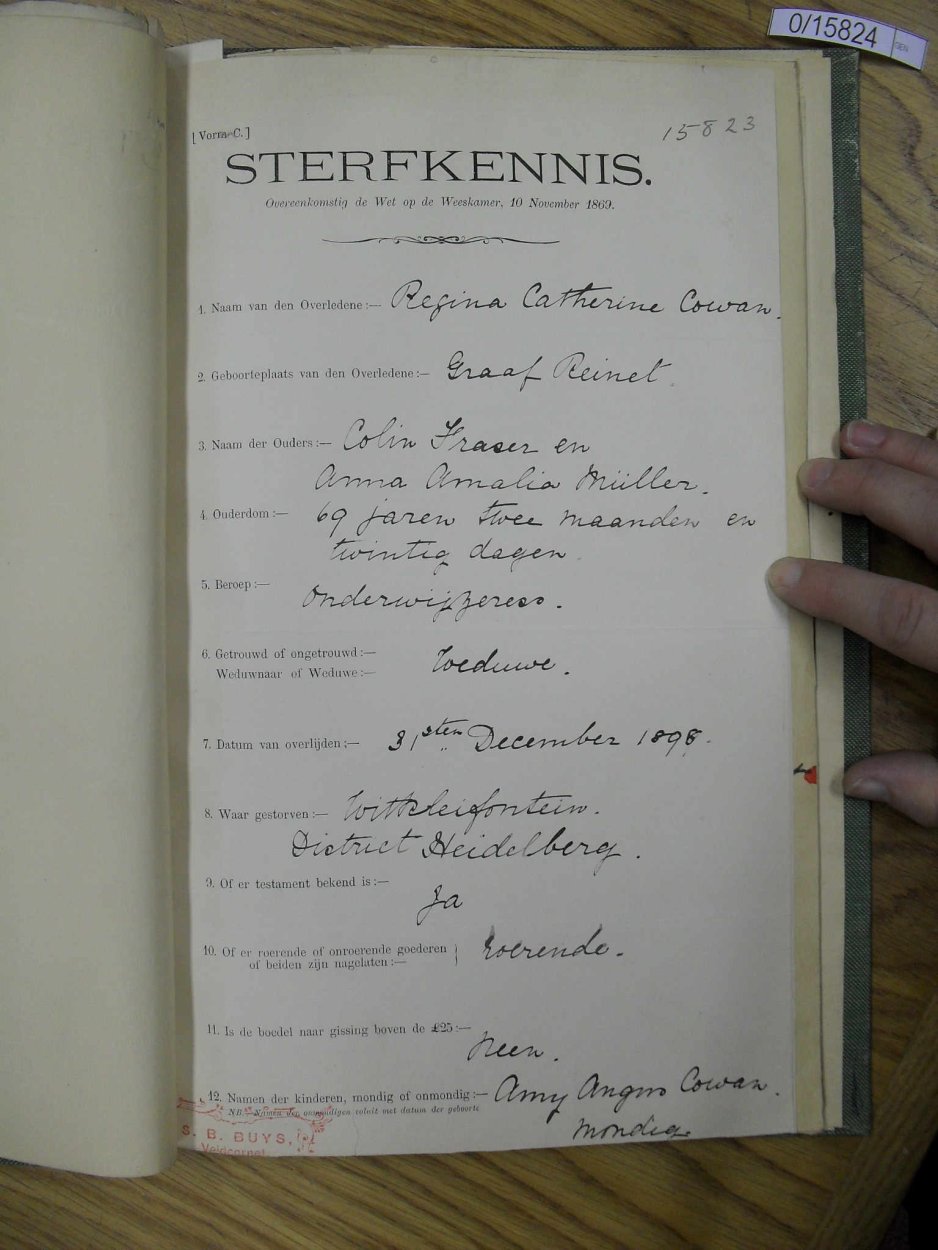 0/15824
GEN
[Vorm C.]
15823
STERFKENNIS.
Overeenkomstig de Wet op de Weeskamer, 10 November 1869.
1. Naam van den Overledene:— Regina Catherine Cowan.
2. Geboorteplaats van den Overledene:— Graaf Reinet.
3. Naam der Ouders:— Colin Fraser en
Anna Amalia Müller.
4. Ouderdom:— 69 jaren twee maanden en
twintig dagen
5. Beroep:—
Onderwijzeress.
6. Getrouwd of ongetrouwd:—
Weduwnaar of Weduwe:— Weduwe.
7. Datum van overlijden:— 31sten December 1898.
8. Waar gestorven:— Witkleifontein.
District Heidelberg.
9. Of er testament bekend is:—
Ja
10. Of er roerende of onroerende goederen
of beiden zijn nagelaten:— roerende.
11. Is de boedel naar gissing boven de £25:—
Neen.
12. Namen der kinderen, mondig of onmondig:— Amy Angus Cowan.
NB.—Namen der onmondigen voluit met datum der geboorte
mondig
S. B. BUYS,
Veldcornet